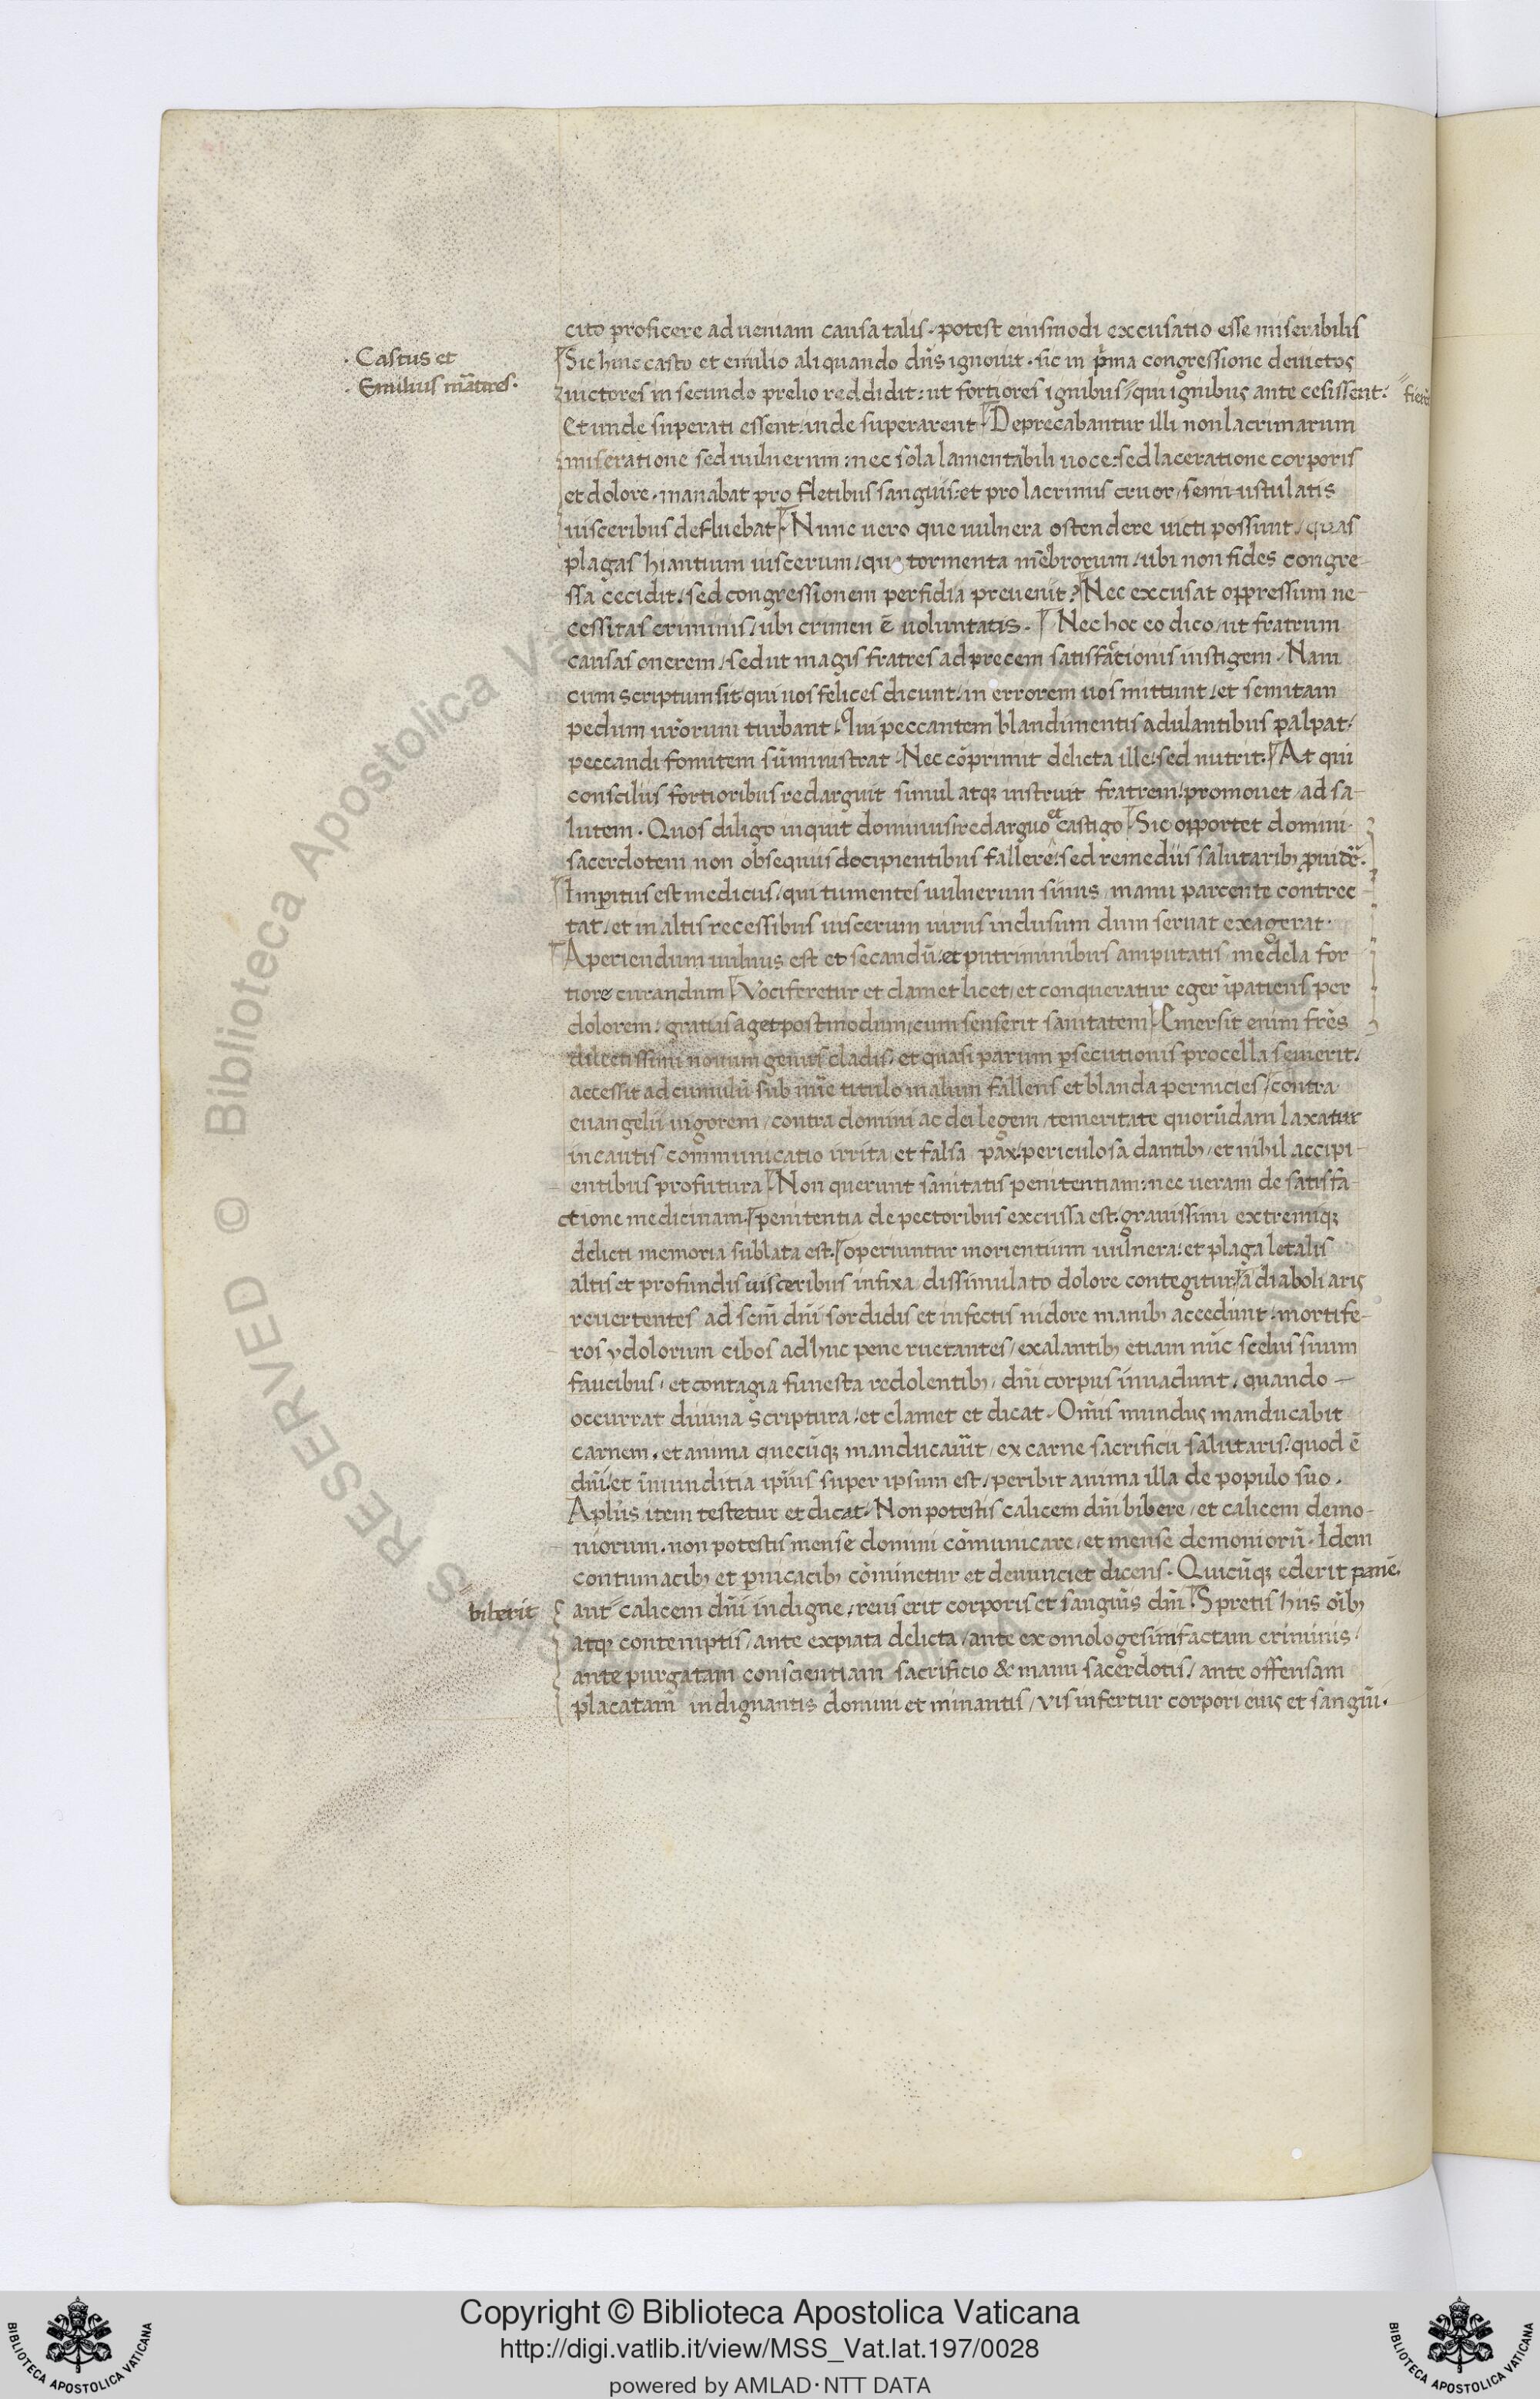 cito proficere ad ueniam causa talis. potest eiusmodi excusatio esse miserabilis
· Castus et
· Emilius mr̃ares.
Sic hinc casto et emilio aliquando dñs ignouit. sic in prima congressione deuictos
uictores in secundo prelio reddidit: ut fortiores ignibus, qui ignibus ante cesissent:
fierẽt
Et unde superati essent: inde superarent. Deprecabantur illi non lacrimarum
miseratione sed uulnerum: nec sola lamentabili uoce: sed laceratione corporis
et dolore. manabat pro fletibus sanguis: et pro lacrimis cruor, semi ustulatis
uisceribus defluebat. Nunc uero que uulnera ostendere uicti possunt, quas
plagas hiantium uiscerum, que tormenta mẽbrorum, ubi non fides congre-
ssa cecidit, sed congressionem perfidia preuenit? Nec excusat oppressum ne-
cessitas criminis, ubi crimen ẽ uoluntatis. Nec hoc eo dico, ut fratrum
causas onerem, sed ut magis fratres ad precem satisfactionis instigem. Nam
cum scriptum sit qui uos felices dicunt, in errorem uos mittunt, et semitam
pedum ur̃orum turbant. Qui peccantem blandimentis adulantibus palpat,
peccandi fomitem sũministrat. Nec cõprimit delicta ille: sed nutrit. At qui
consiliis fortioribus redarguit simul atq; instruit fratrem, promouet ad sa-
lutem. Quos diligo inquit dominus: redarguo et castigo. Sic opportet domini
sacerdotem non obsequiis decipientibus fallere: sed remediis salutarib; puidẽ.
Imperitus est medicus, qui tumentes uulnerum sinus manu parcente contrec
tat, et in altis recessibus uiscerum uirus inclusum dum seruat exagerat.
Aperiendum uulnus est et secandũ, et putriminibus amputatis medela for
tiore curandum. Vociferetur et clamet licet, et conqueratur eger ĩpatiens per
dolorem: gratias aget postmodum, cum senserit sanitatem. Emersit enim fr̃es
dilectissimi nouum genus cladis, et quasi parum psecutionis procella seuierit,
accessit ad cumulũ sub mĩe titulo malum fallens et blanda pernicies, contra
euangelii uigorem, contra domini ac dei legem, temeritate quorũdam laxatur
incautis communicatio irrita et falsa pax: periculosa dantib; et nihil accipi-
entibus profutura. Non querunt sanitatis penitentiam: nec ueram de satisfa-
ctione medicinam. penitentia de pectoribus excussa est. grauissimi extremiq;
delicti memoria sublata est. operiuntur morientium uulnera: et plaga letalis
altis et profundis uisceribus infixa dissimulato dolore contegitur. a diaboli aris
reuertentes ad scm̃ dñi sordidis et infectis nidore manib; accedunt. mortife-
ros ydolorum cibos adhuc pene ructantes, exalantib; etiam nũc scelus suum
faucibus, et contagia funesta redolentib; dñi corpus inuadunt, quando
occurrat diuina scriptura, et clamet et dicat. Om̃is mundus manducabit
carnem, et anima quecũq; manducauit̃ ex carne sacrificii salutaris, quod ẽ
dñi, et ĩmunditia ipĩus super ipsum est, peribit anima illa de populo suo.
Apl̃us item testetur et dicat. Non potestis calicem dñi bibere, et calicem demo-
niorum. non potestis mense domini cõmunicare, et mense demoniorũ. Idem
contumacib; et puicacib; cõminetur et denunciet dicens. Quicũq; ederit panẽ.
biberit
aut calicem dñi indigne, reus erit corporis et sanguĩs dñi. Spretis his oĩb;
atq; contemptis, ante expiata delicta, ante exomologesim factam criminis,
ante purgatam conscientiam sacrificio & manu sacerdotis, ante offensam
placatam indignantis domini et minantis, vis infertur corpori eius et sanguĩ.
© Biblioteca Apostolica Vaticana
Copyright © Biblioteca Apostolica Vaticana
http://digi.vatlib.it/view/MSS_Vat.lat.197/0028
powered by AMLAD·NTT DATA
BIBLIOTECA APOSTOLICA VATICANA
BIBLIOTECA APOSTOLICA VATICANA